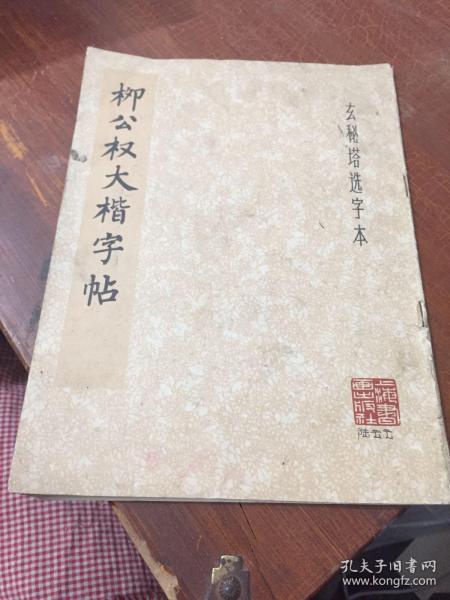 柳公权大楷字帖
玄秘塔选字本
上海书画出版社
孔夫子旧书网
www.kongfz.com